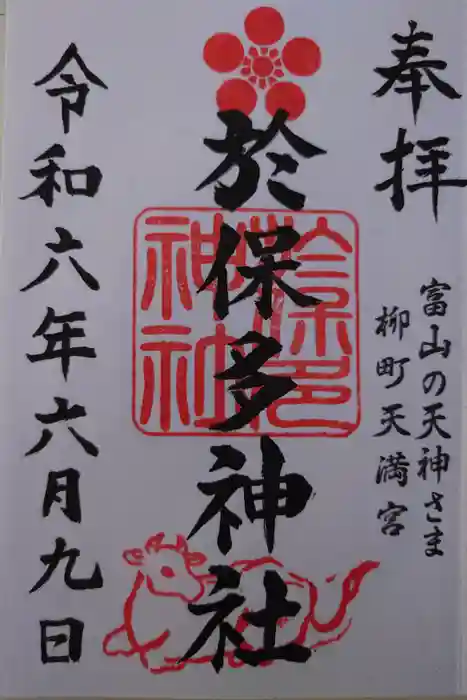 奉拝
富山の天神さま
柳町天満宮
於保多神社
於保多
神社
令和六年六月九日